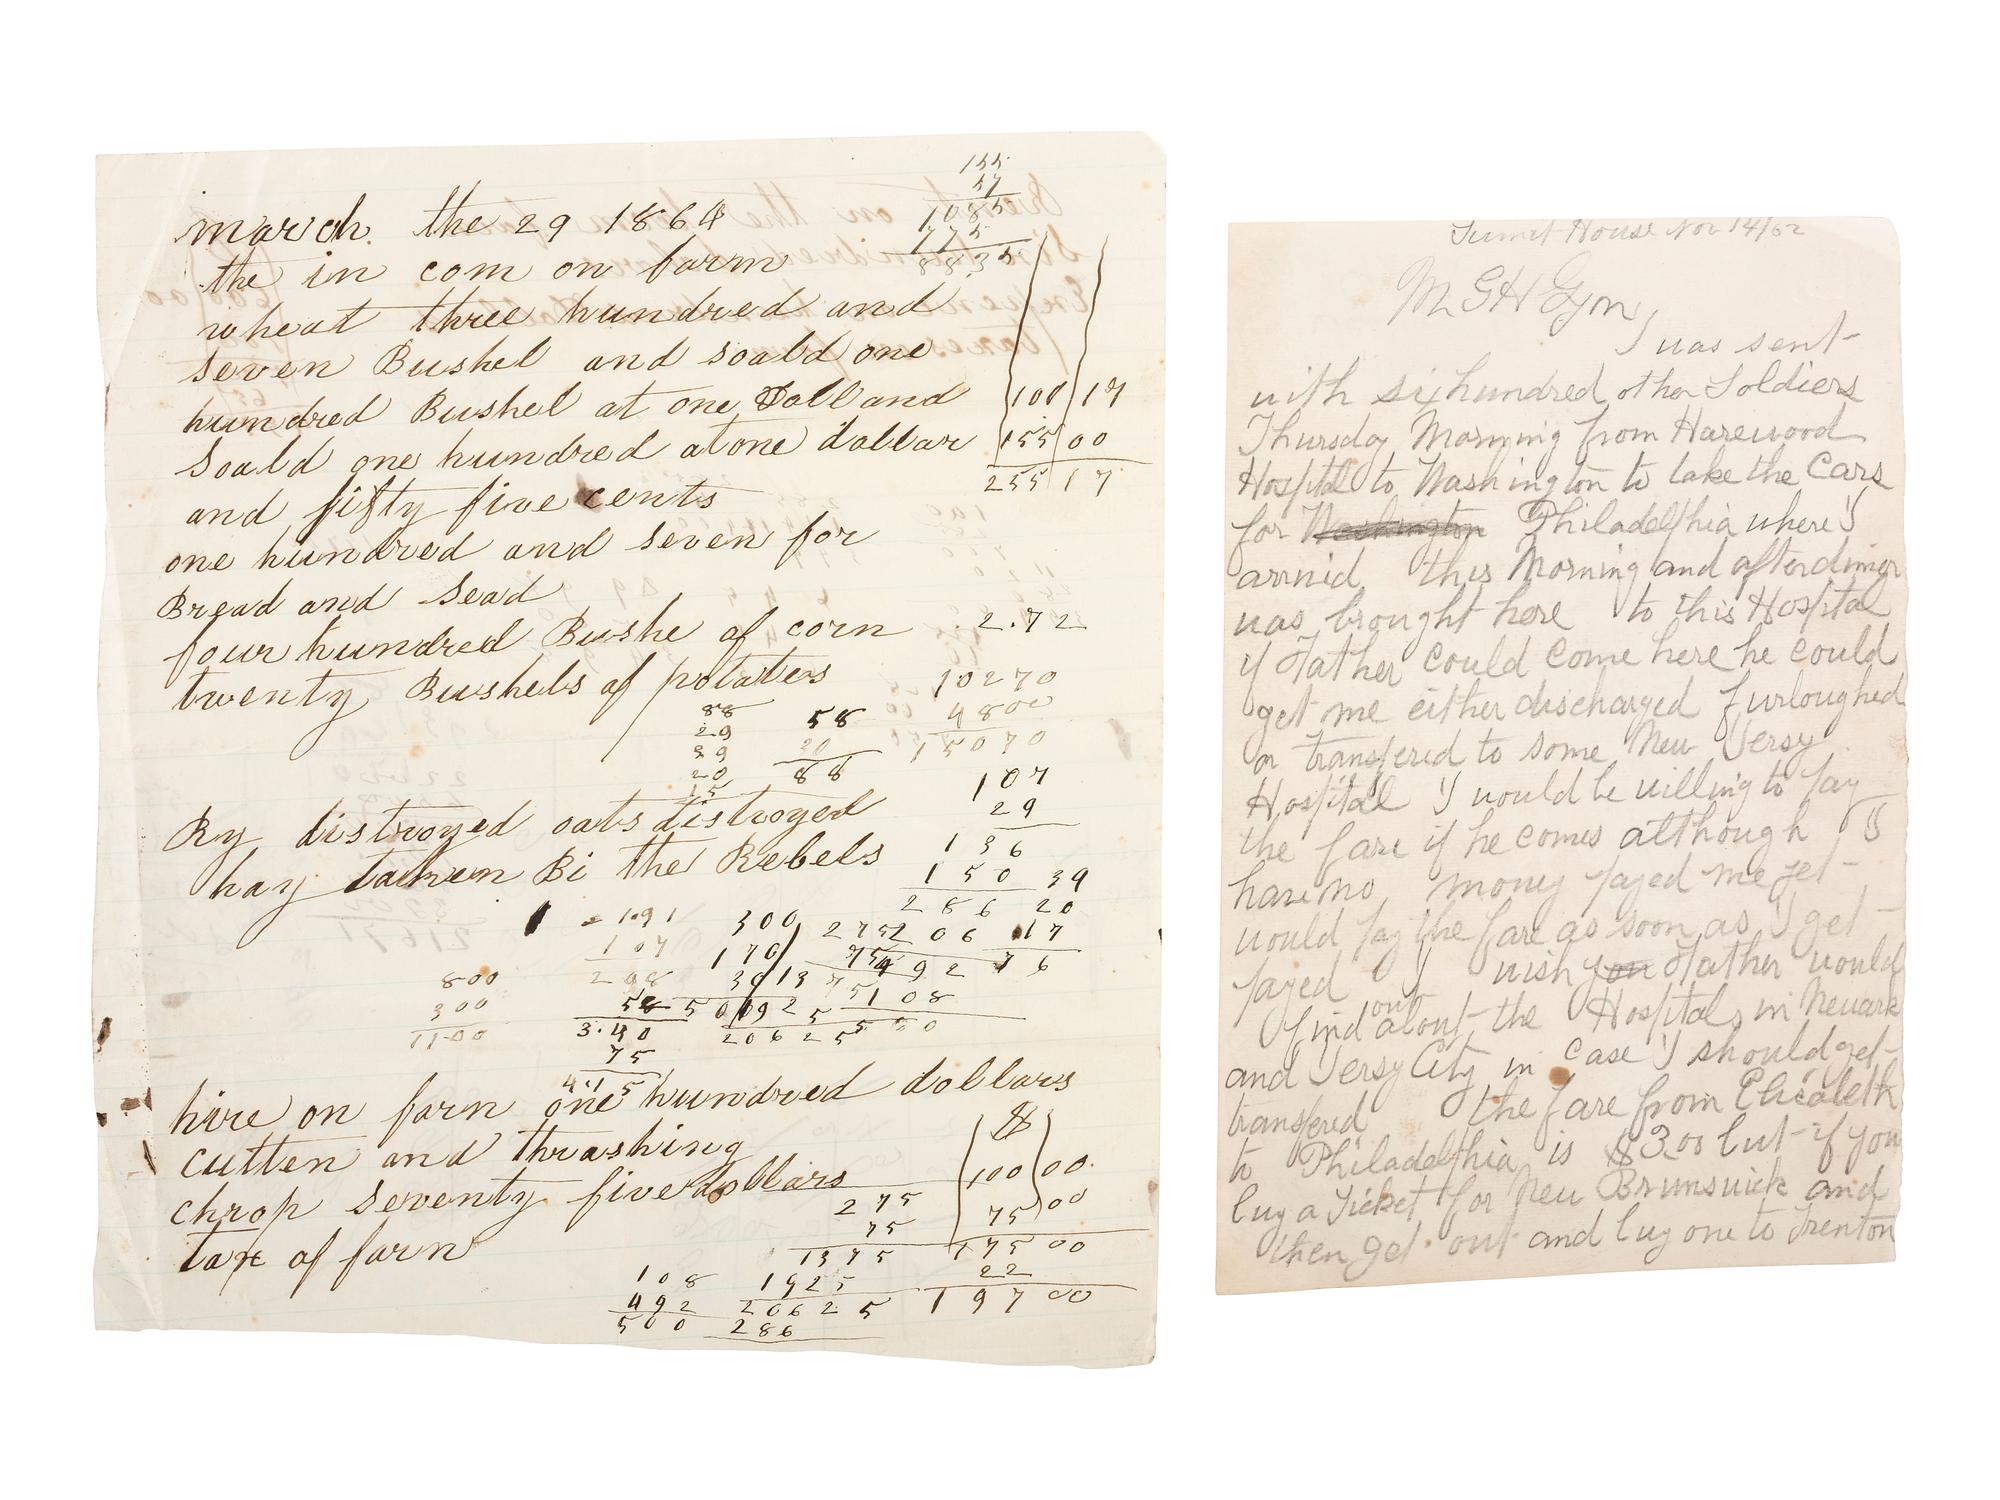 155
57
1085
775
8835
march the 29 1864
the in com on farm
wheat three hundred and
seven Bushel and soald one
hundred Bushel at one Doll and 100 17
Soald one hundred at one dollar 155 00
255 17
and fifty five cents
one hundred and seven for
Bread and Sead
four hundred Bushe of corn 2.72
twenty Bushels of potaters 10270
88 58 4800
29 20 15070
39 88
20
15
107
29
Ry distroyed oats distroyed 136
hay taken Bi the Rebels 150 39
286 20
191 300 2 06 17
107 170 492 76
800 298 108
300 58
1100 3.40 20625 550
75
415
hire on farn one hundred dollars
cutten and thrashing
chrop seventy five dollars 100 00
275 75 00
75
tax of farn 1375 175 00
22
108 1925 197 00
492 20625
500 286
Sumit House Nov 14/62
M G H
I was sent
with six hundred other Soldiers
Thursday Morning from Harewood
Hospital to Washington to take the Cars
for Washington Philadelphia where I
arrivid this Morning and after dinner
was brought here to this Hospital
if Father could come here he could
get me either discharged furloughed
or transfered to some New Jersy
Hospital I would be willing to pay
the fare if he comes although I
have no money payed me yet
would pay the fare as soon as I get
payed I wish you Father would
find out about the Hospitals in Newark
and Jersy City in case I should get
transfered the fare from Elizabeth
to Philadelphia is $3.00 but if you
buy a Ticket for New Brunswick and
then get out and buy one to Trenton